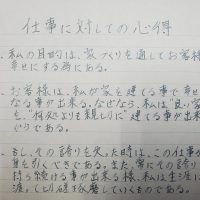 仕事に対しての心得
・私の目的は、家づくりを通してお客様
幸せにする為にある。
・お客様は、私が家を建てる事で幸せ
なる事が出来る。なぜなら、私は"良い家
を、"何処よりも親切に"建てる事が出来
からである。
・もし、その誇りを失った時は、この仕事か
身を引くべきである。また、常にその誇り
持ち続ける事が出来る様、私は生涯に
渡って切磋琢磨していくものである。